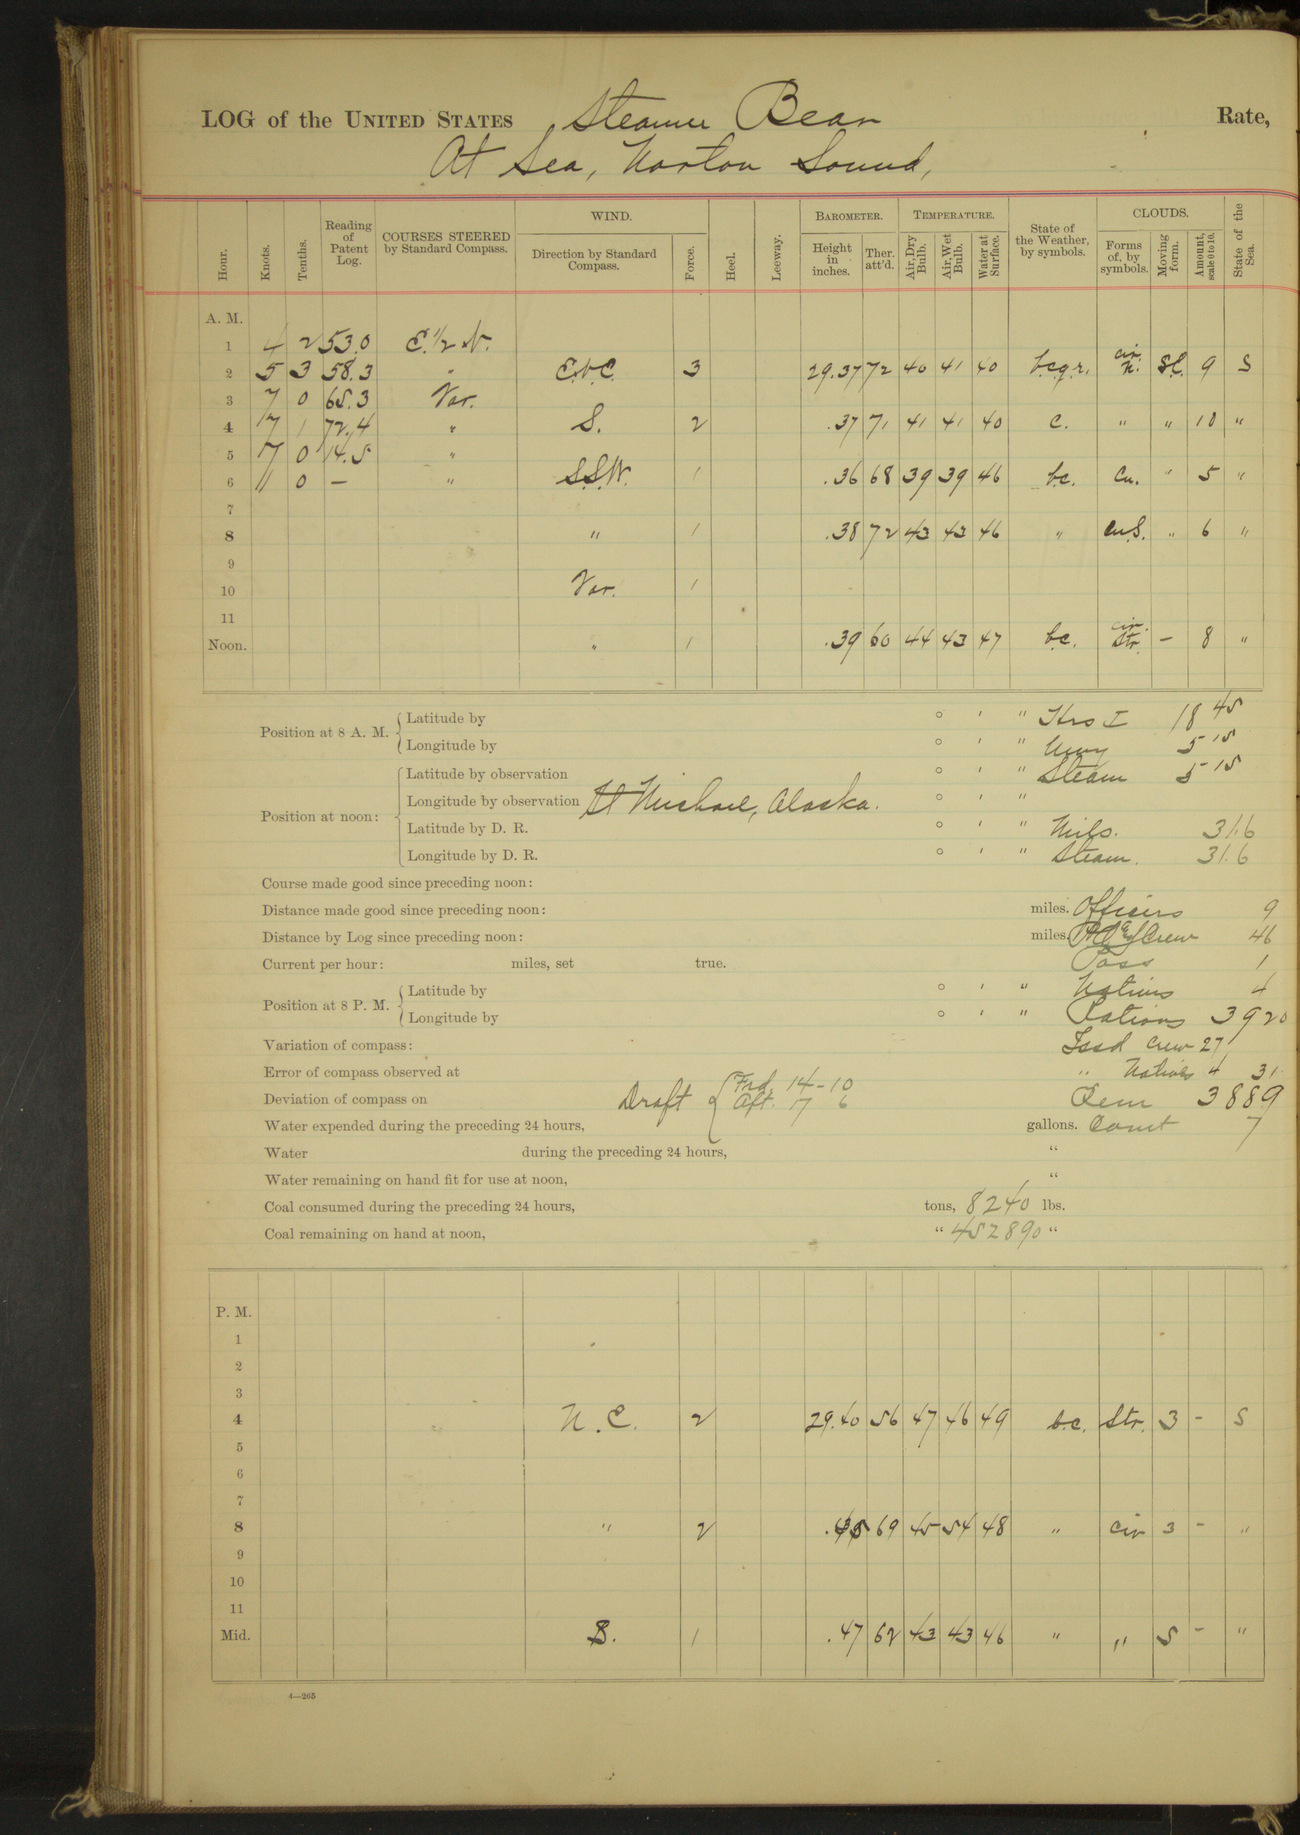 LOG of the UNITED STATES Steamer Bear Rate,
At Sea, Norton Sound,
Hour. Knots. Tenths. Reading of Patent Log. COURSES STEERED by Standard Compass. WIND. Direction by Standard Compass. Force. Heel. Leeway. BAROMETER. Height in inches. Ther. att'd. TEMPERATURE. Air, Dry Bulb. Air, Wet Bulb. Water at Surface. State of the Weather, by symbols. CLOUDS. Forms of, by symbols. Moving form. Amount, scale 0 to 10. State of the Sea.
A. M.
1 4 2 53.0 E. 1/2 N.
2 5 3 58.3 " E.b.E. 3 29.37 72 40 41 40 b.c.q.r. cir. N. S.E. 9 S
3 7 0 65.3 Var.
4 7 1 72.4 " S. 2 .37 71 41 41 40 c. " " 10 "
5 7 0 14.5 "
6 11 0 — " S.S.W. 1 .36 68 39 39 46 b.c. Cu. " 5 "
7
8 " 1 .38 72 43 43 46 " Cu.S. " 6 "
9
10 Var. 1
11
Noon. " 1 .39 60 44 43 47 b.c. cir. Str. — 8 "
Position at 8 A. M. Latitude by ° ' " Hrs I 18 45
Longitude by ° ' " Uwy 5 15
Position at noon: Latitude by observation ° ' " Steam 5 15
Longitude by observation St Michael, Alaska. ° ' "
Latitude by D. R. ° ' " Mils. 31.6
Longitude by D. R. ° ' " Steam. 31.6
Course made good since preceding noon:
Distance made good since preceding noon: miles. Officers 9
Distance by Log since preceding noon: miles. Crew 46
Current per hour: miles, set true. Pass 1
Position at 8 P. M. Latitude by ° ' " Natives 4
Longitude by ° ' " Rations 3920
Variation of compass: Issd Crew 27
Error of compass observed at " Natives 4 31
Deviation of compass on Draft Frd. 14-10 Aft. 17 6 Rem 3889
Water expended during the preceding 24 hours, gallons. Comt 7
Water during the preceding 24 hours, "
Water remaining on hand fit for use at noon, "
Coal consumed during the preceding 24 hours, tons, 8240 lbs.
Coal remaining on hand at noon, " 452890 "
P. M.
1
2
3
4 N.E. 2 29.40 56 47 46 49 b.c. Str. 3 - S
5
6
7
8 " 2 69 45 54 48 " Cir 3 - "
9
10
11
Mid. S. 1 .47 62 43 43 46 " " 5 - "
4—265